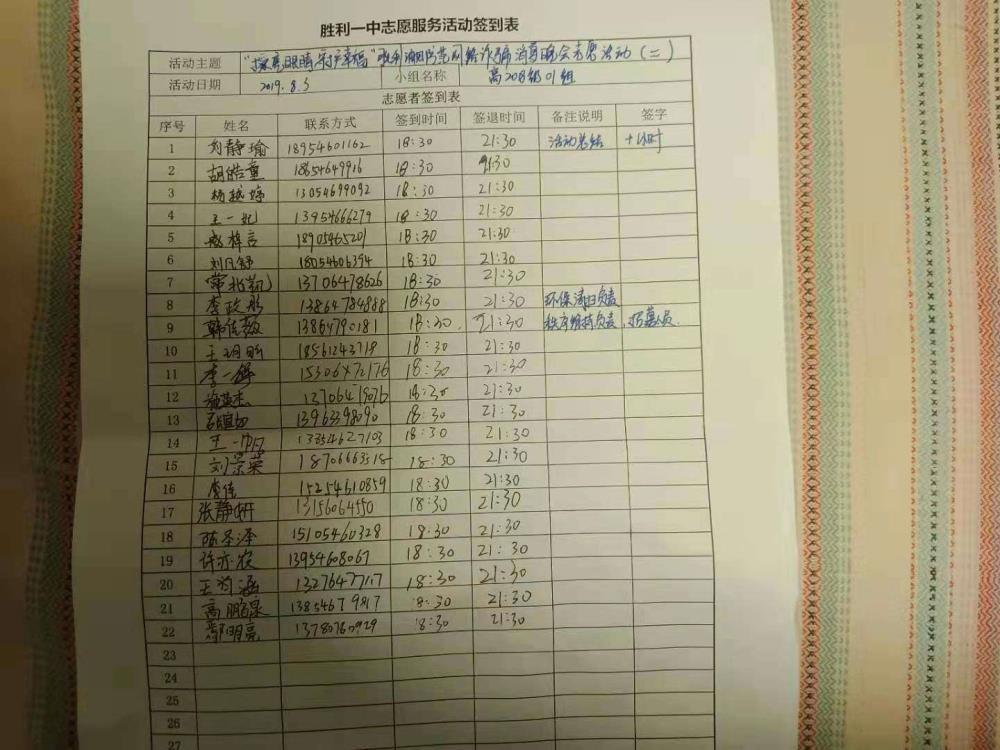 胜利一中志愿服务活动签到表
活动主题 "擦亮眼睛 守护幸福" 消夏晚会志愿活动（二）
活动日期 2019.8.5 小组名称 高2018级01组
志愿者签到表
序号 姓名 联系方式 签到时间 签退时间 备注说明 签字
1 刘静瑜 18954601162 18:30 21:30 活动总结 +1小时
2 胡皓童 18654649916 18:30 21:30
3 杨越婷 13054699092 18:30 21:30
4 王一妃 13954666279 18:30 21:30
5 18905465201 18:30 21:30
6 刘凡舒 18054606394 18:30 21:30
7 13706478626 18:30 21:30
8 李政彤 13864784888 18:30 21:30 环保清扫负责
9 韩佳薇 13864790181 18:30. 21:30 秩序维持负责，招募人员.
10 王玥昕 18561243719 18:30 21:30
11 李一锋 15306472176 18:30 21:30
12 18:30 21:30
13 13963398090 18:30 21:30
14 王一帆 13354627103 18:30 21:30
15 刘景荣 18706663518 18:30 21:30
16 唐佳 15254610859 18:30 21:30
17 张静妍 13156064550 18:30 21:30
18 陈圣泽 15105460328 18:30 21:30
19 许亦农 13954608067 18:30 21:30
20 王雨涵 13276477117 18:30 21:30
21 高鹏泉 13854679817 18:30 21:30
22 鄢明亮 13780760929 18:30 21:30
23
24
25
26
27